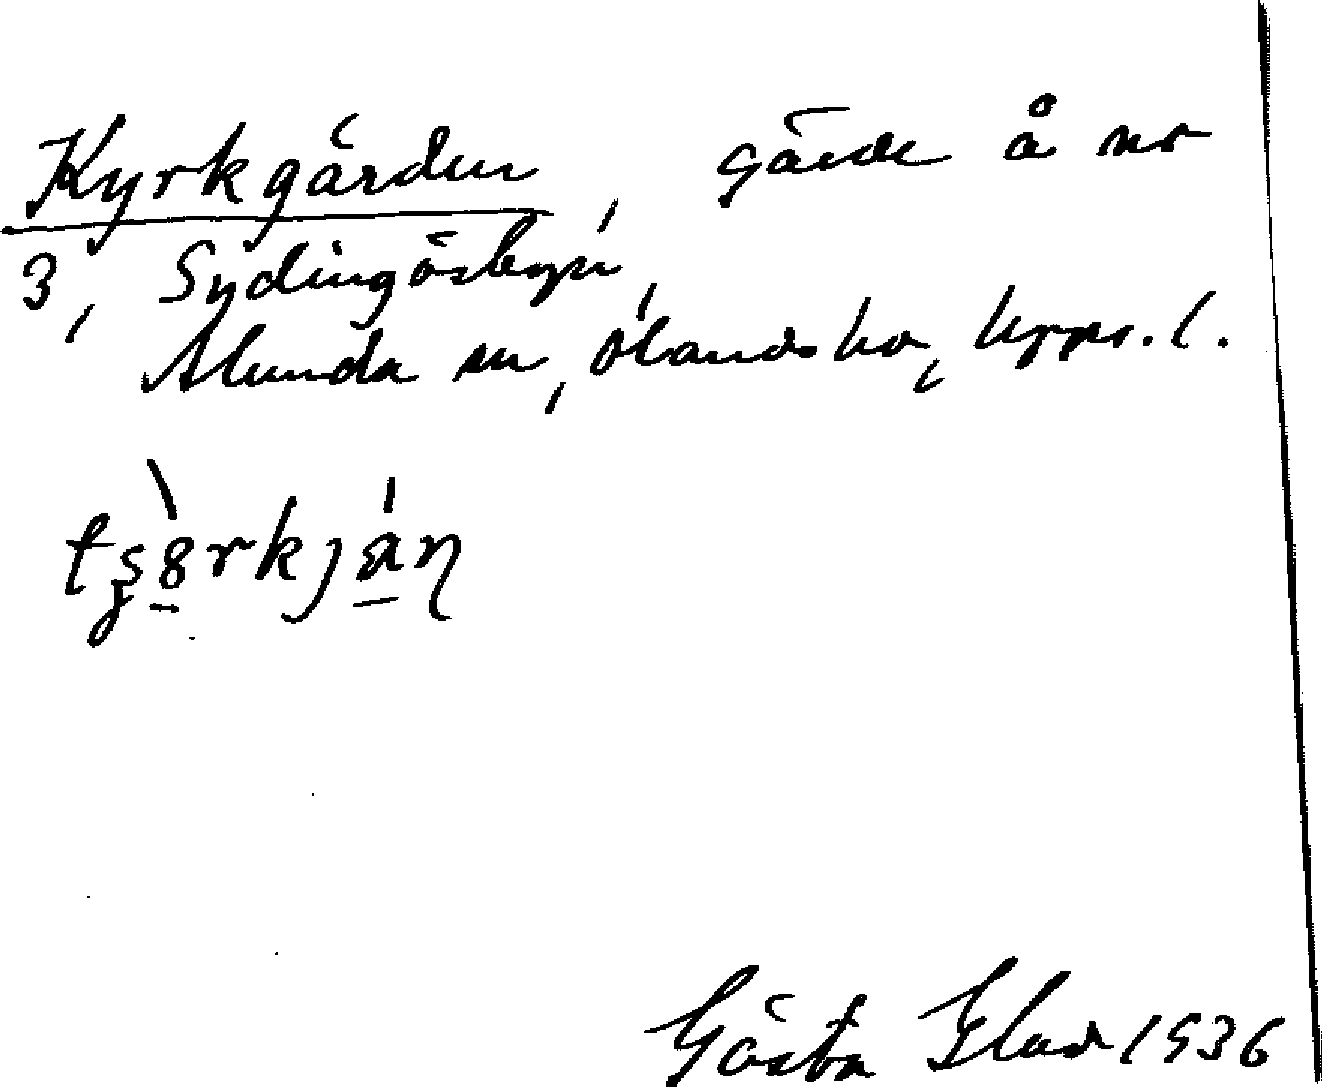 Kyrkgården, gärde å nr
3, Sydingösbyn,
Alunda sn, Ölands hd, Upps. l.
tʂ8rkjáɳ
Gösta 1936